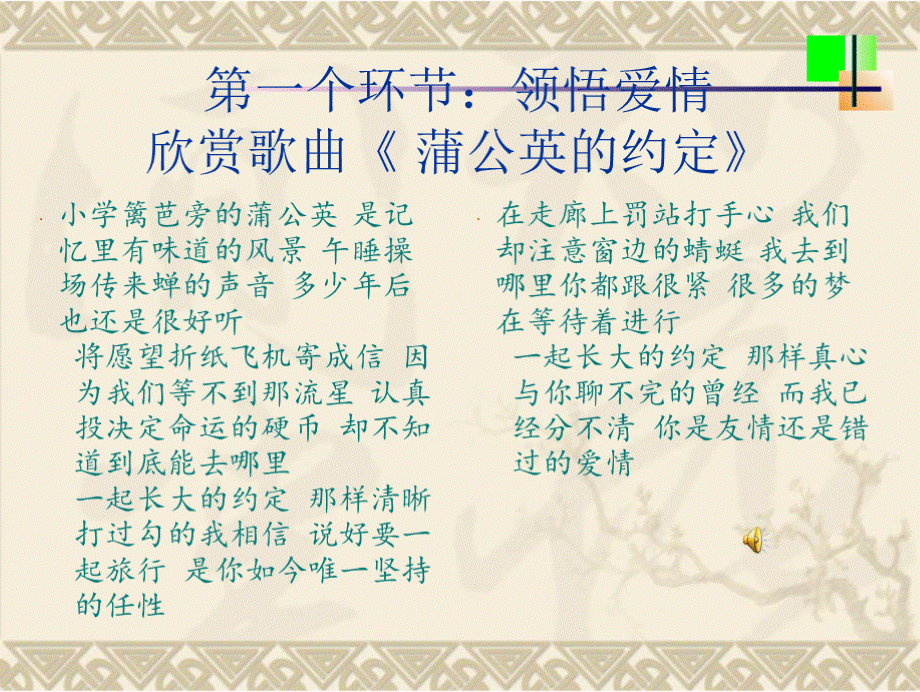 第一个环节：领悟爱情
欣赏歌曲《 蒲公英的约定》
小学篱芭旁的蒲公英 是记
忆里有味道的风景 午睡操
场传来蝉的声音 多少年后
也还是很好听
将愿望折纸飞机寄成信 因
为我们等不到那流星 认真
投决定命运的硬币 却不知
道到底能去哪里
一起长大的约定 那样清晰
打过勾的我相信 说好要一
起旅行 是你如今唯一坚持
的任性
在走廊上罚站打手心 我们
却注意窗边的蜻蜓 我去到
哪里你都跟很紧 很多的梦
在等待着进行
一起长大的约定 那样真心
与你聊不完的曾经 而我已
经分不清 你是友情还是错
过的爱情